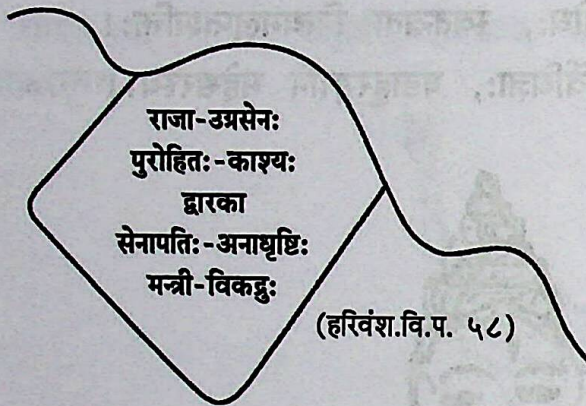 राजा-उग्रसेनः
पुरोहितः-काश्यः
द्वारका
सेनापतिः-अनाधृष्टिः
मन्त्री-विकद्रुः
(हरिवंश.वि.प. ५८)